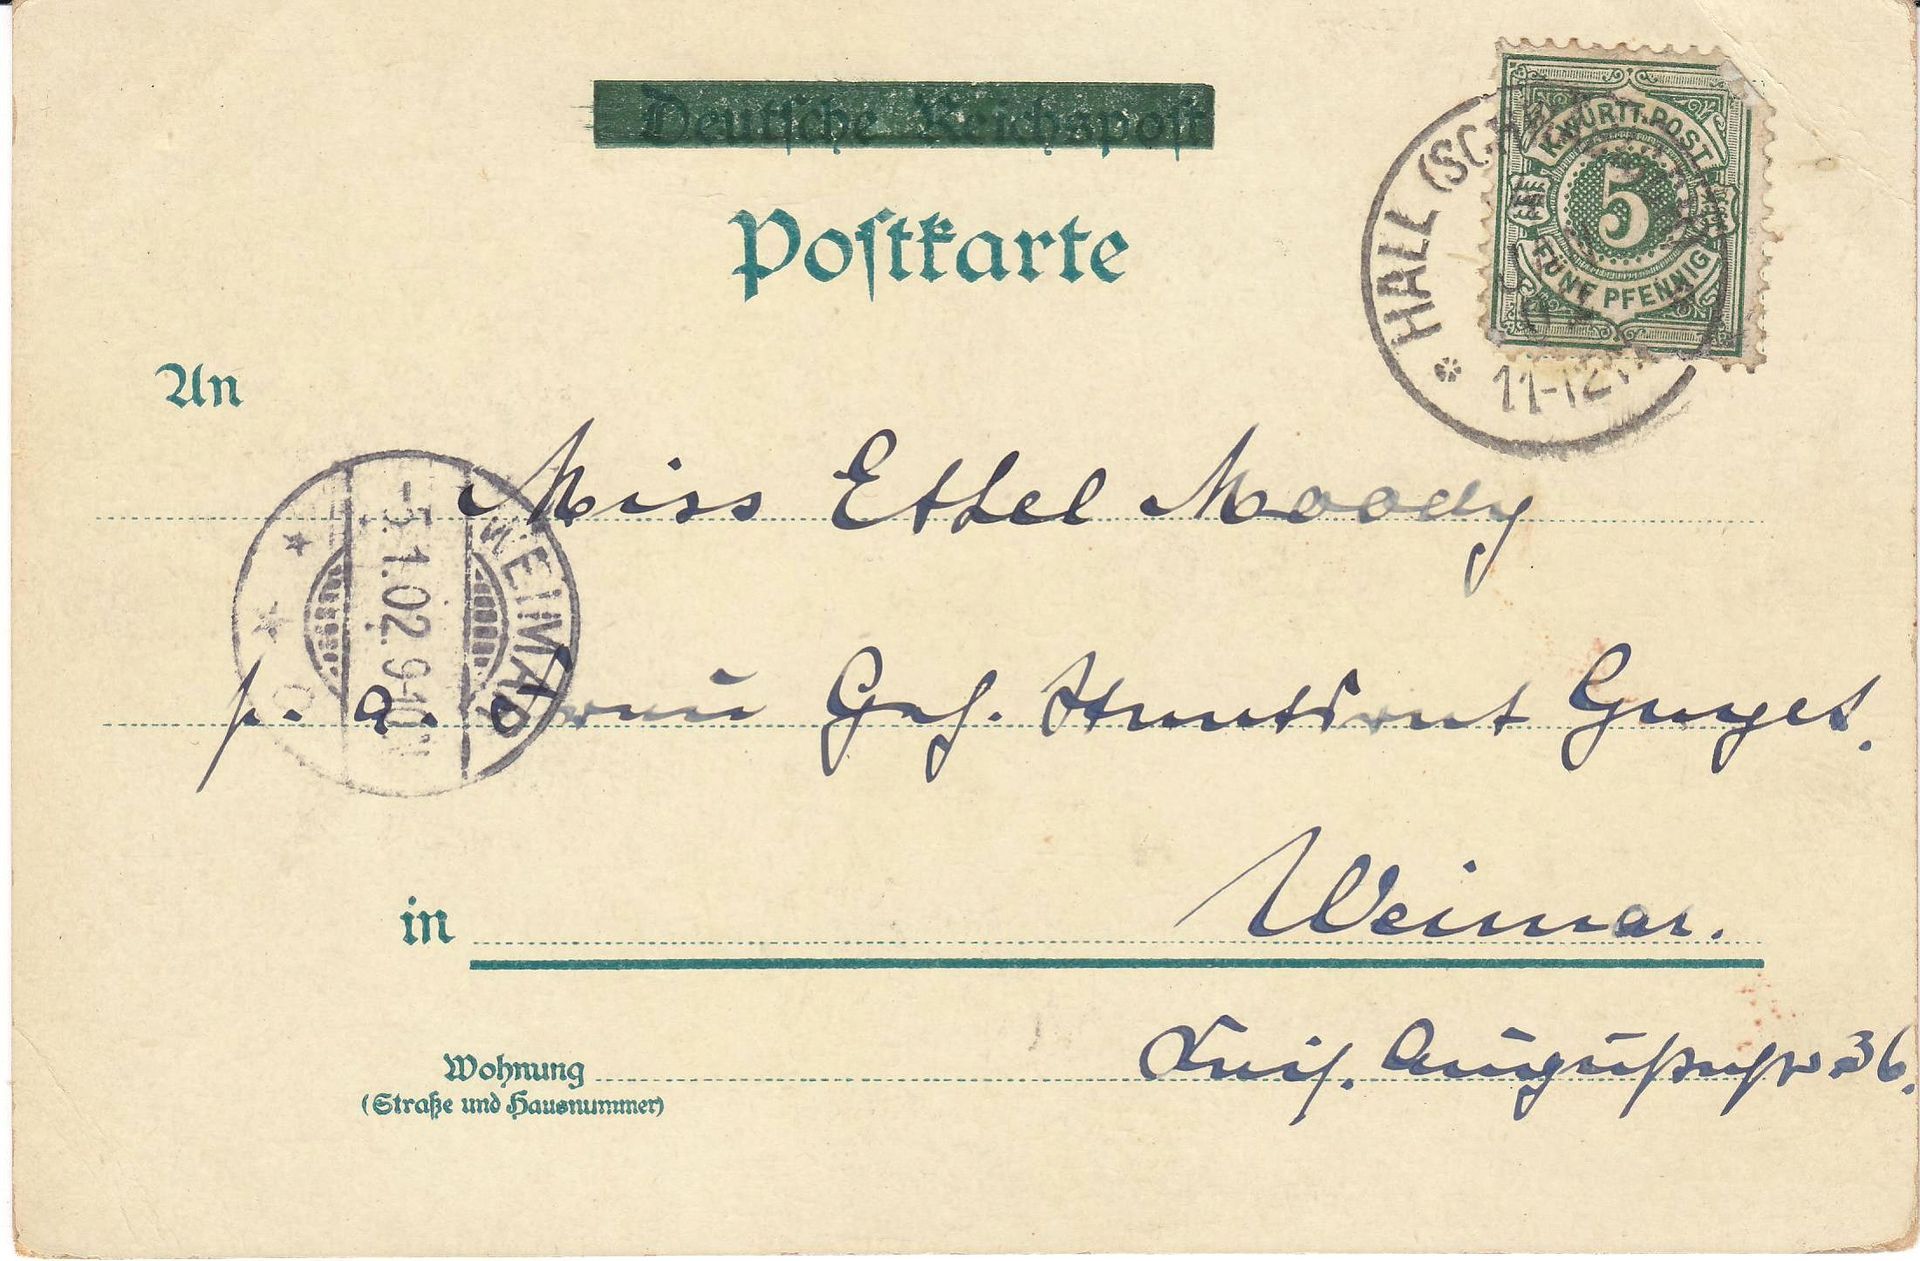 Deutsche Reichspost
Postkarte
K. WÜRTT. POST
5
FÜNF PFENNIG
HALL (SCH
11-12
An
Miss Ethel Moody
WEIMAR
-3.1.02.9-10
p. a. Frau Geh. Staatsrat Guyet.
in Weimar.
Wohnung Luis. Augustastr 36.
(Straße und Hausnummer)